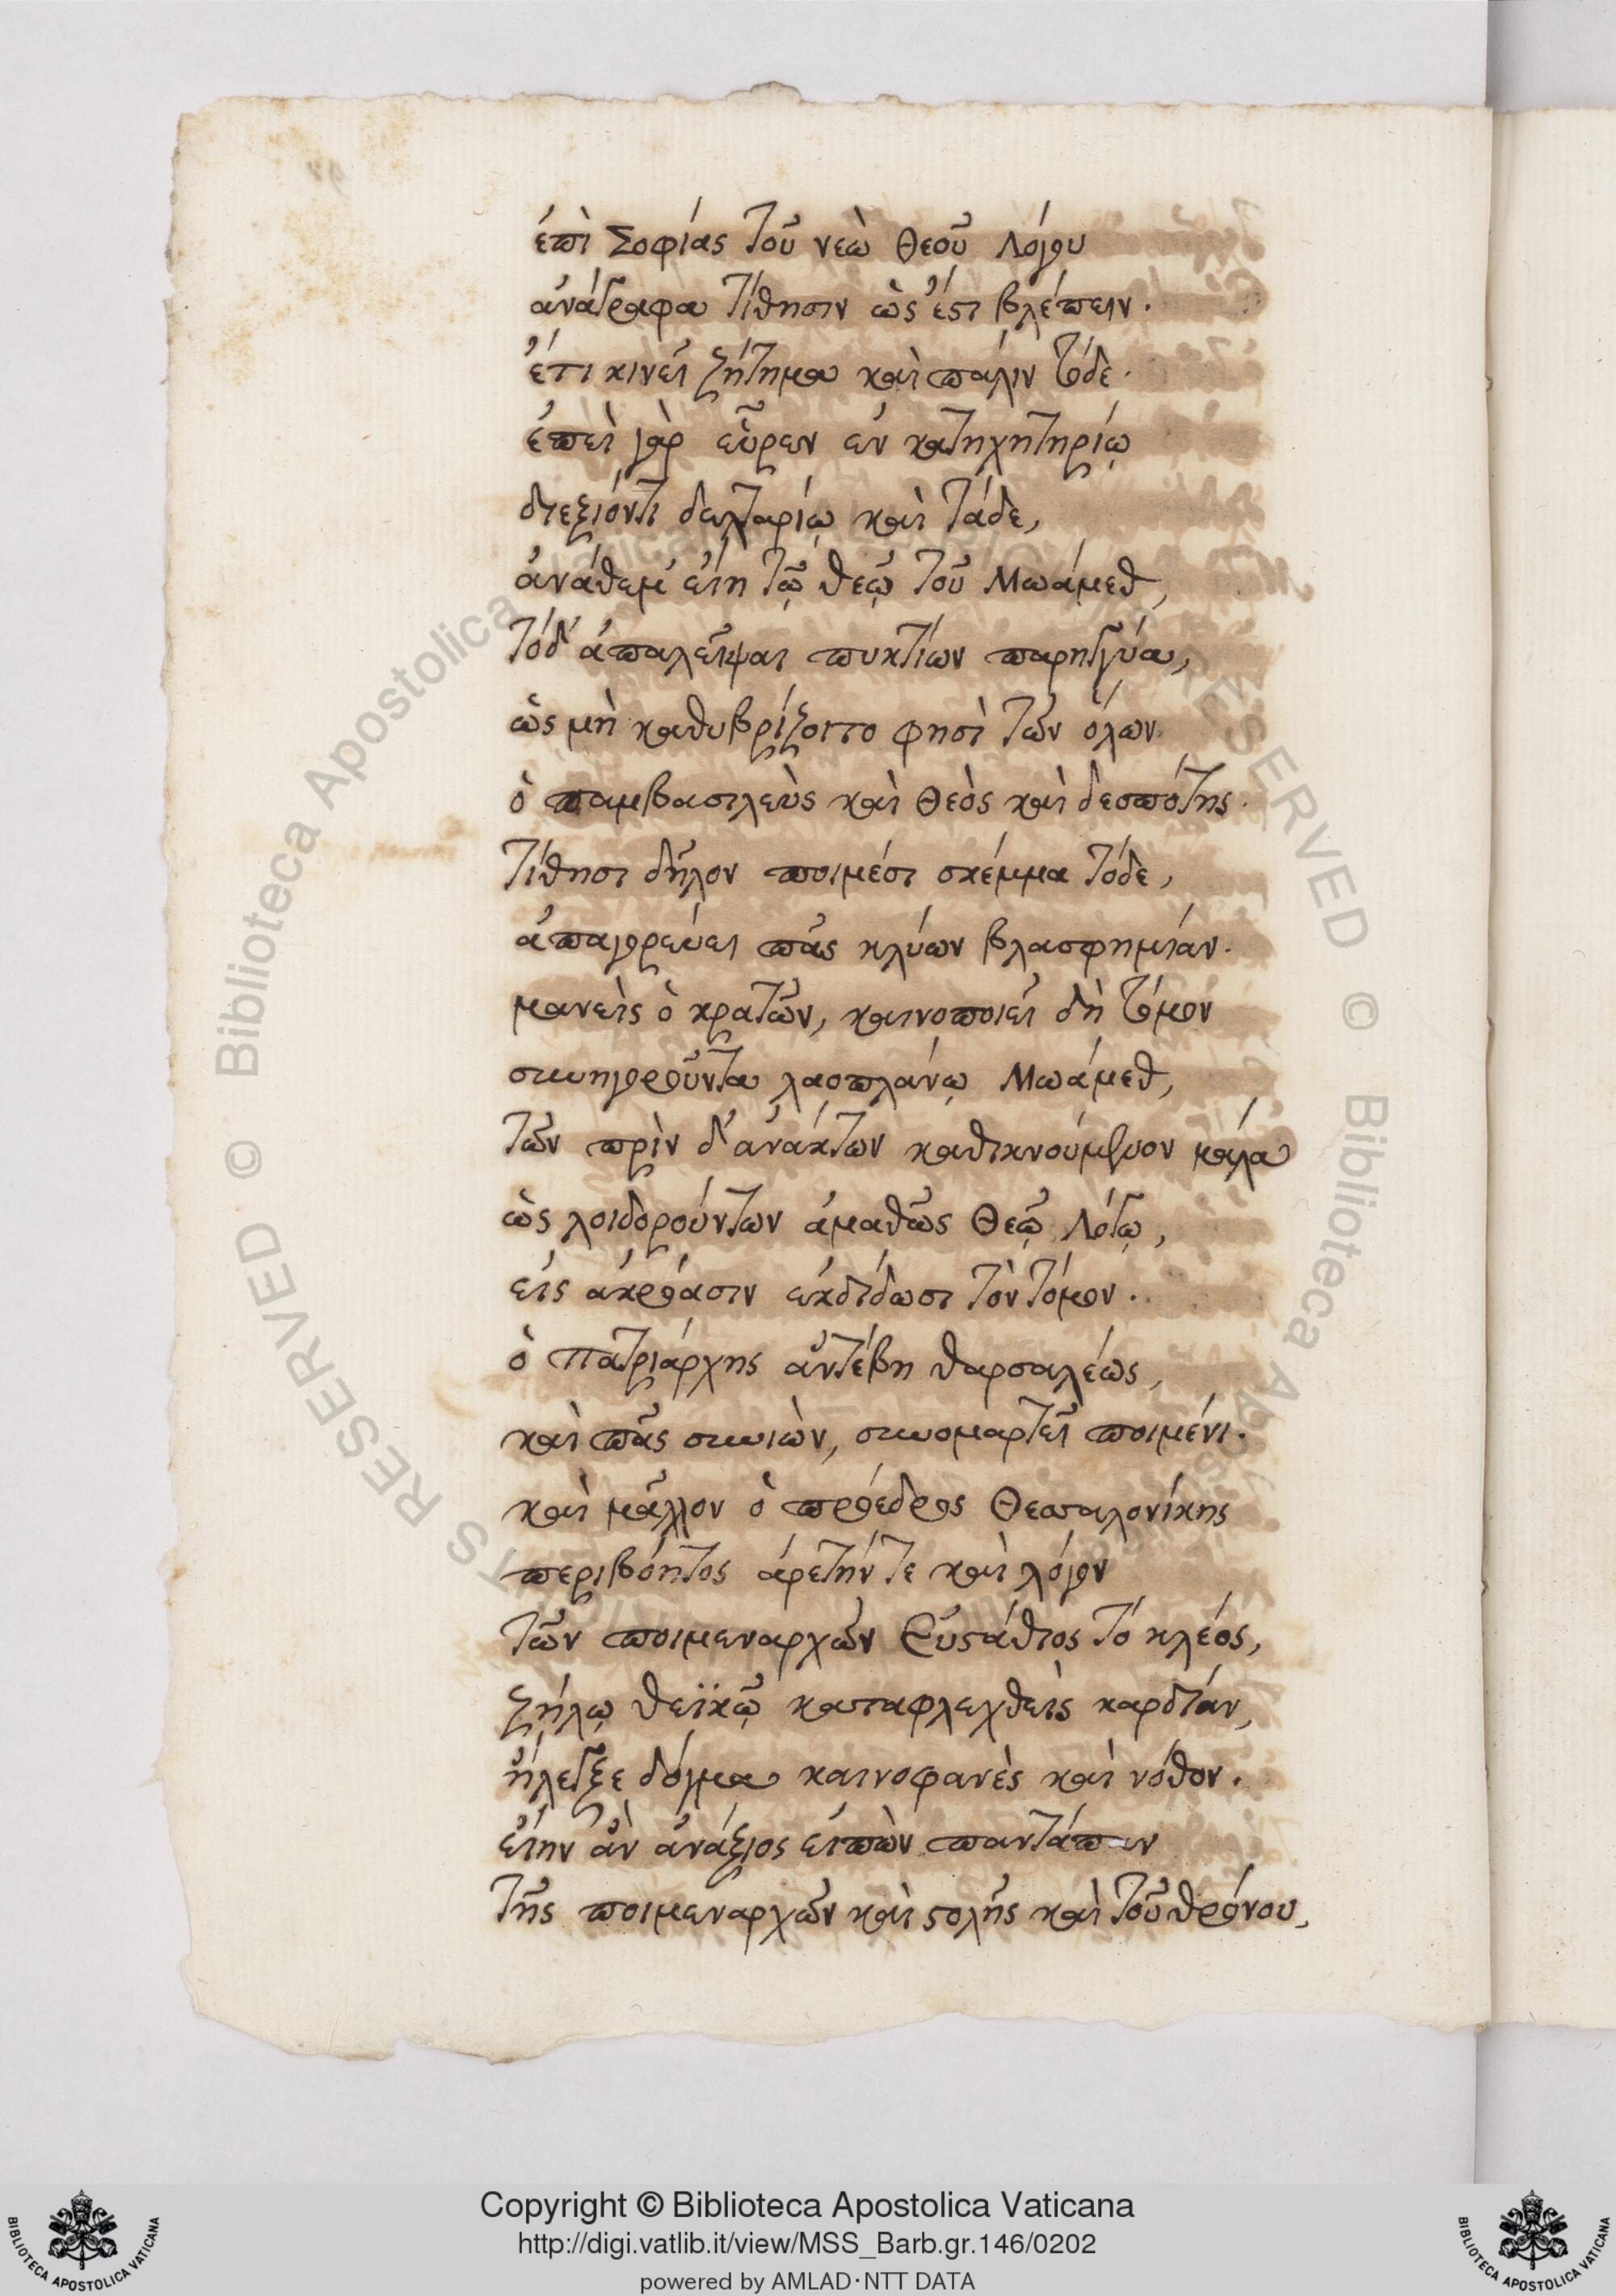 ἐπὶ Σοφίας τοῦ νεὼ Θεοῦ Λόγου
ἀνάγραφα τίθησιν ὡς ἔστι βλέπειν.
ἔτι κινεῖ ζήτημα καὶ πάλιν τόδε.
ἐπεὶ γὰρ εὗρεν ἐν κατηχητηρίῳ
διεξιόντι δελταρίῳ καὶ τάδε,
ἀνάθεμ' εἴη τῷ θεῷ τοῦ Μωάμεθ,
τόδ' ἀπαλεῖψαι πυκτίων παρηγγύα,
ὡς μὴ καθυβρίζοιτο φησὶ τῶν ὅλων
ὁ παμβασιλεὺς καὶ Θεὸς καὶ δεσπότης.
τίθησι δῆλον ποιμέσι σκέμμα τόδε,
ἀπαγορεύει πᾶς κλύων βλασφημίαν.
μανεὶς ὁ κρατῶν, καινοποιεῖ δὴ τόμον
συνηγοροῦντα λαοπλάνῳ Μωάμεθ,
τῶν πρὶν δ' ἀνάκτων καθικνούμενον μάλα
ὡς λοιδορούντων ἀμαθῶς Θεῷ Λόγῳ,
εἰς ἀκρόασιν ἐκδίδωσι τὸν τόμον.
ὁ Πατριάρχης ἀντέβη θαρσαλέως,
καὶ πᾶς συνιὼν, συνομαρτεῖ ποιμένι.
καὶ μᾶλλον ὁ πρόεδρος Θεσσαλονίκης
περιβόητος ἀρετήν τε καὶ λόγον
τῶν ποιμεναρχῶν Εὐστάθιος τό κλέος,
ζήλῳ θεϊκῷ καταφλεχθεὶς καρδίαν,
ἤλεγξε δόγμα καινοφανὲς καὶ νόθον.
εἴην ἂν ἀνάξιος εἰπὼν παντάπασιν
τῆς ποιμεναρχῶν καὶ στολῆς καὶ τοῦ θρόνου,
© Biblioteca Apostolica Vaticana
RIGHTS RESERVED
Copyright © Biblioteca Apostolica Vaticana
http://digi.vatlib.it/view/MSS_Barb.gr.146/0202
powered by AMLAD·NTT DATA
BIBLIOTECA APOSTOLICA VATICANA
BIBLIOTECA APOSTOLICA VATICANA